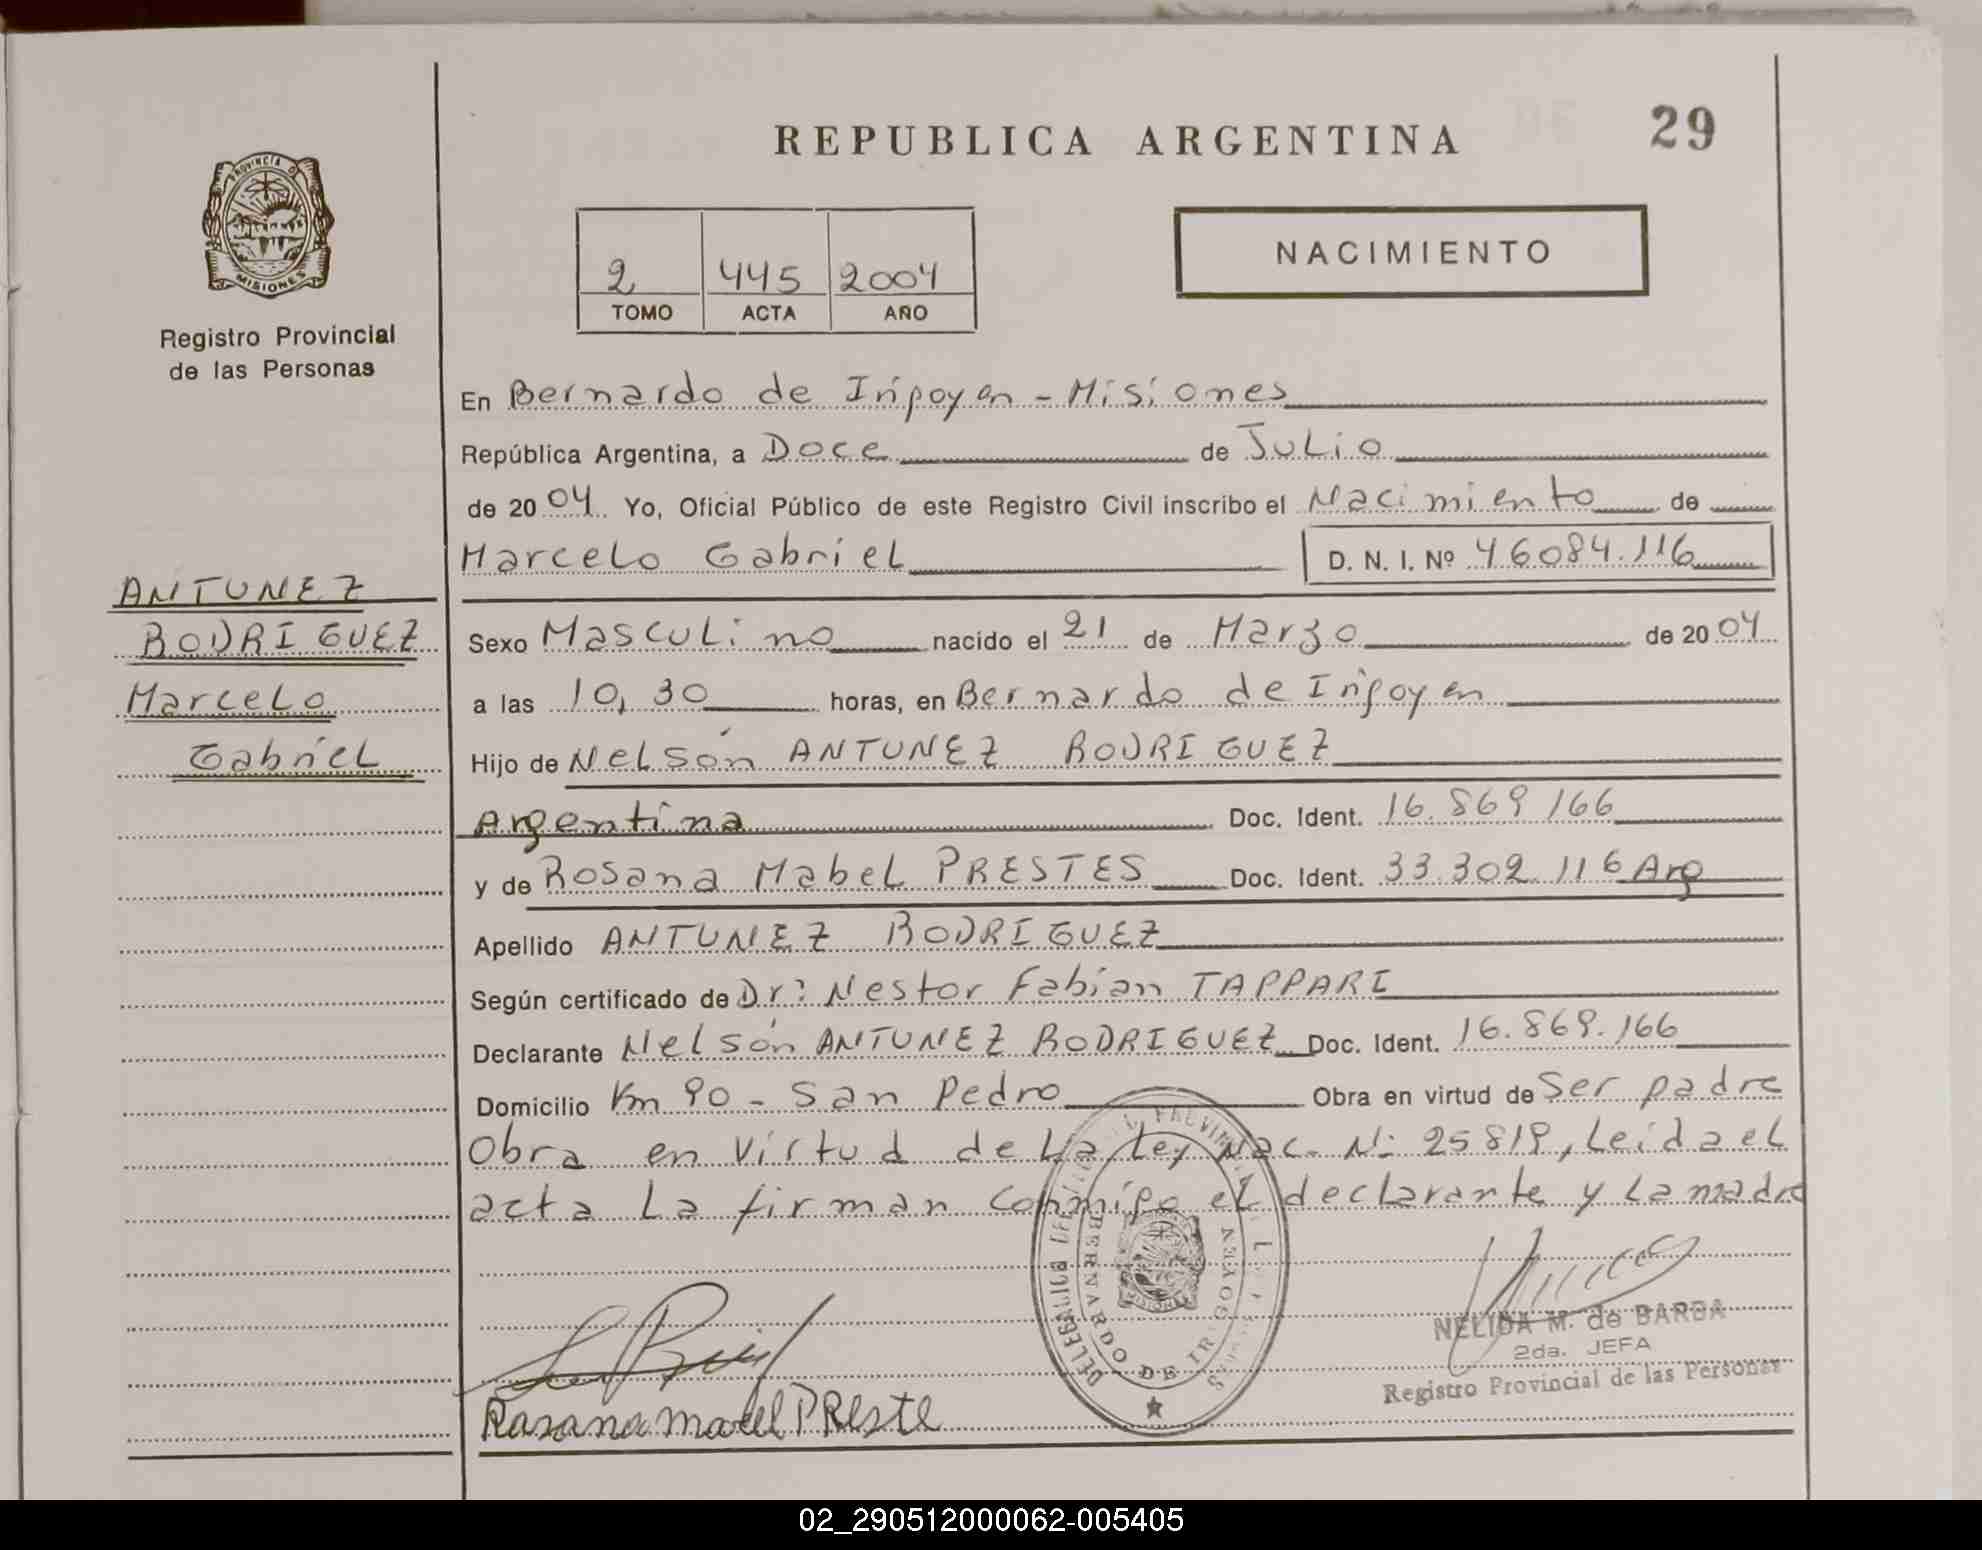 REPUBLICA ARGENTINA
29
PROVINCIA D
MISIONES
Registro Provincial
de las Personas
2 445 2004
TOMO ACTA AÑO
NACIMIENTO
En Bernardo de Irigoyen - Misiones
República Argentina, a Doce de Julio
de 2004 Yo, Oficial Público de este Registro Civil inscribo el Nacimiento de
Marcelo Gabriel D. N. I. Nº 46084.116
ANTUNEZ
RODRIGUEZ
Marcelo
Gabriel
Sexo Masculino nacido el 21 de Marzo de 2004
a las 10,30 horas, en Bernardo de Irigoyen
Hijo de Nelsón ANTUNEZ RODRIGUEZ
Argentina Doc. Ident. 16.869 166
y de Rosana Mabel PRESTES Doc. Ident. 33.302 116 Arg
Apellido ANTUNEZ RODRIGUEZ
Según certificado de Dr: Nestor Fabian TAPPARI
Declarante Nelsón ANTUNEZ RODRIGUEZ Doc. Ident. 16.869.166
Domicilio Km 90 - San Pedro Obra en virtud de Ser padre
Obra en virtud de La Ley Nac. N: 25819, Leida el
acta La firman conmigo el declarante y La madre
BERNARDO DE IRIGOYEN
MISIONES
NELIDA M. de BARDA
2da. JEFA
Registro Provincial de las Personas
Rasana mabel PReste
02_290512000062-005405